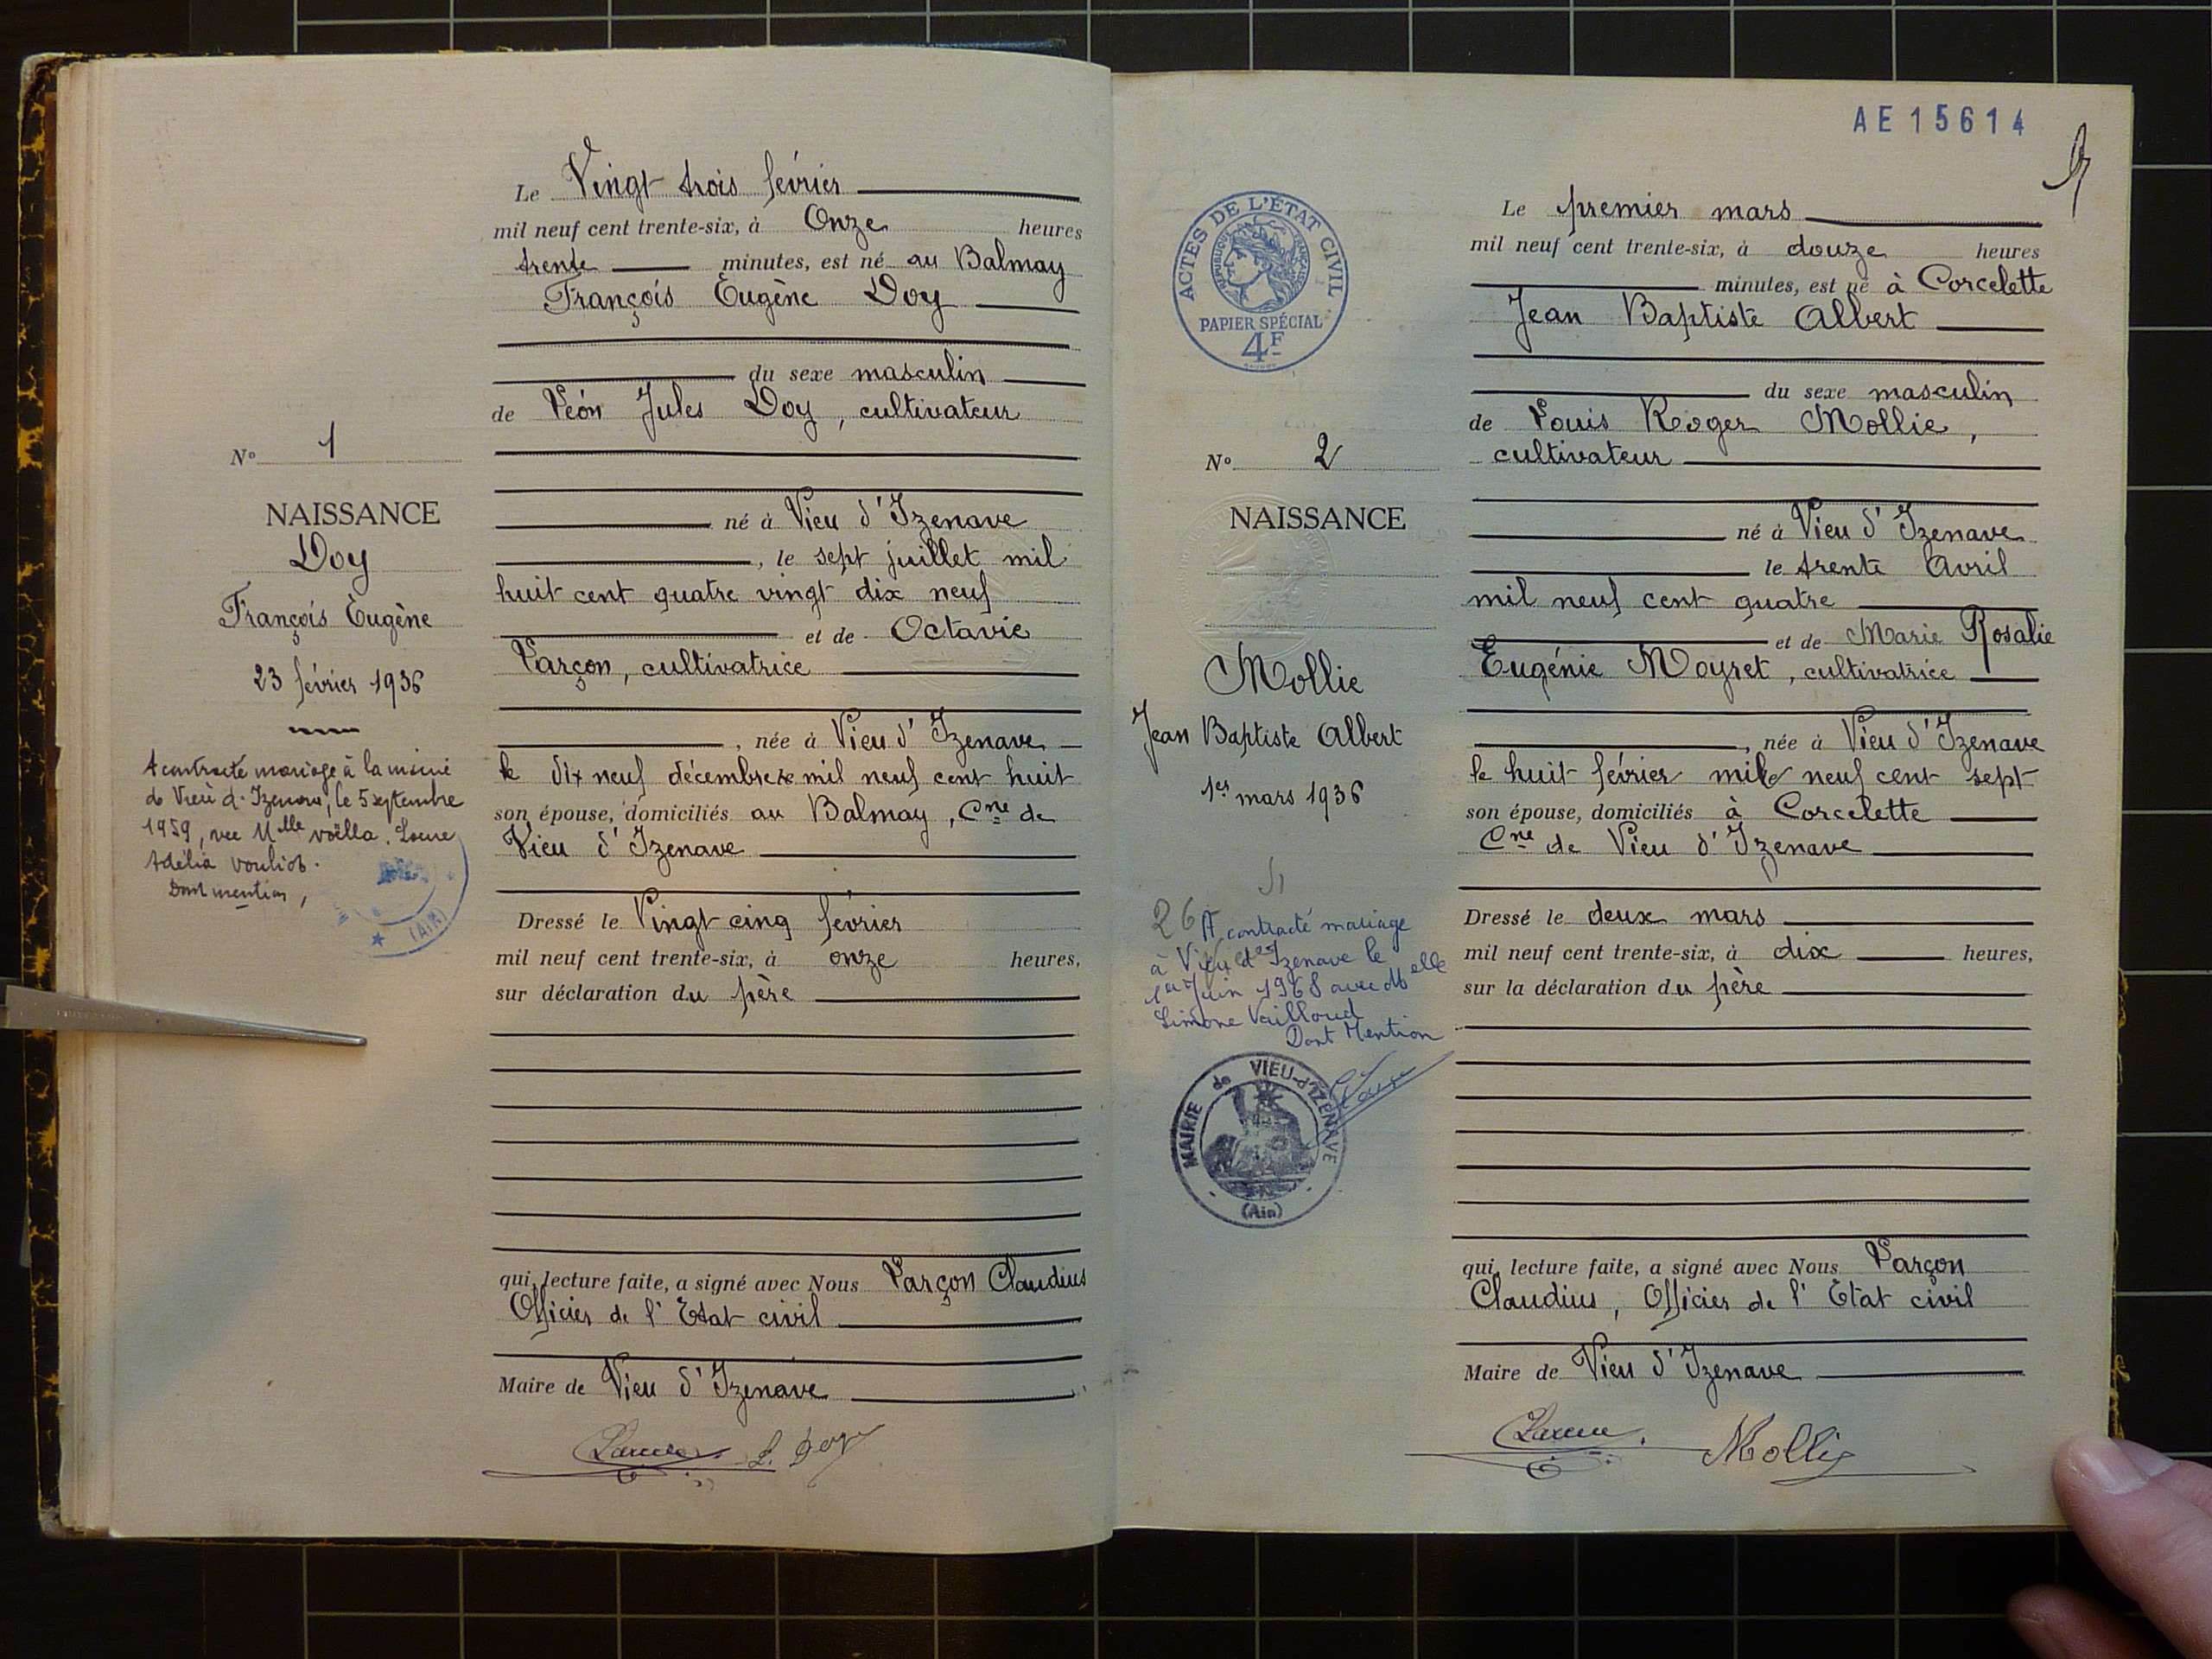 Le Vingt trois février
mil neuf cent trente-six, à Onze heures
trente minutes, est né au Balmay
François Eugène Doy
du sexe masculin
de Léon Jules Doy, cultivateur
né à Vieu d'Izenave
, le sept juillet mil
huit cent quatre vingt dix neuf
et de Octavie
Larçon, cultivatrice
, née à Vieu d'Izenave
le dix neuf décembre mil neuf cent huit
son épouse, domiciliés au Balmay, Cne de
Vieu d'Izenave
Dressé le Vingt cinq février
mil neuf cent trente-six, à onze heures,
sur déclaration du père
qui, lecture faite, a signé avec Nous Larçon Claudius
Officier de l'Etat civil
Maire de Vieu d'Izenave
L. Doy
No 1
NAISSANCE
Doy
François Eugène
23 février 1936
A contracté mariage à la mairie
de Vieu d'Izenave, le 5 septembre
1959, avec Mlle
Adélia
Dont mention,
(AIN)
AE15614
ACTES DE L'ÉTAT CIVIL
RÉPUBLIQUE FRANÇAISE
PAPIER SPÉCIAL
4F
No 2
NAISSANCE
Mollie
Jean Baptiste Albert
1er mars 1936
26 A contracté mariage
à Vieu d'Izenave le
1er Juin 1968 avec Melle
Simone
Dont Mention
MAIRIE de VIEU-d'IZENAVE
(Ain)
Le premier mars
mil neuf cent trente-six, à douze heures
minutes, est né à Corcelette
Jean Baptiste Albert
du sexe masculin
de Louis Roger Mollie,
cultivateur
né à Vieu d'Izenave
le trente Avril
mil neuf cent quatre
et de Marie Rosalie
Eugénie Moyret, cultivatrice
, née à Vieu d'Izenave
le huit février mil neuf cent sept
son épouse, domiciliés à Corcelette
Cne de Vieu d'Izenave
Dressé le deux mars
mil neuf cent trente-six, à dix heures,
sur la déclaration du père
qui, lecture faite, a signé avec Nous Larçon
Claudius, Officier de l'Etat civil
Maire de Vieu d'Izenave
Mollie